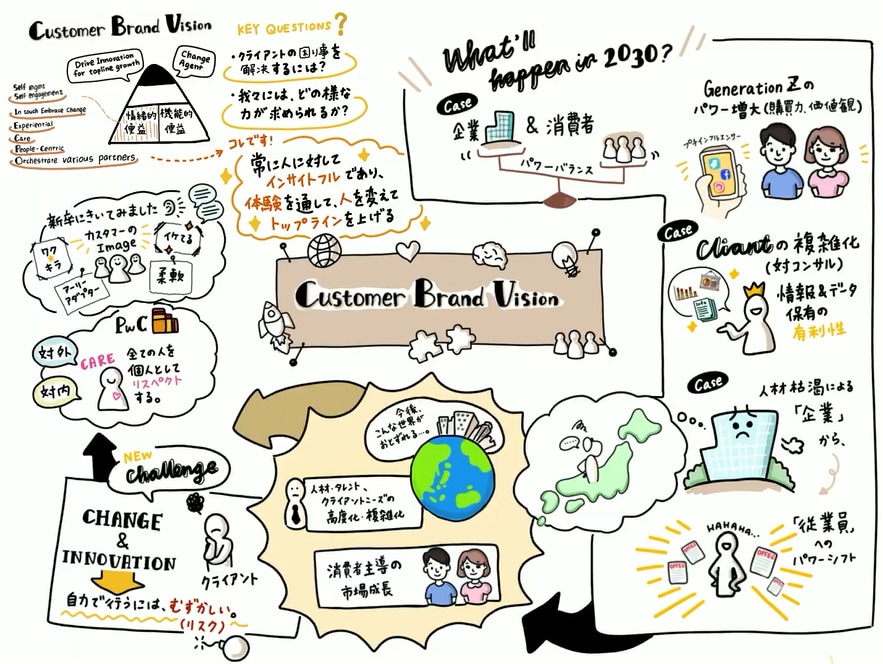 Customer Brand Vision
Drive Innovation
for topline growth
Change
Agent
Self mgmt
Self engagement
In touch Embrace Change
Experiential
Care
People-Centric
Orchestrate various partners
情緒的
便益
機能的
便益
KEY QUESTIONS?
・クライアントの困り事を
解決するには?
・我々には、どの様な
力が求められるか?
コレです!
常に人に対して
インサイトフルであり、
体験を通して、人を変えて
トップラインを上げる
新卒にきいてみました
カスタマーの
Image
ワク
キラ
イケてる
アーリー
アダプター
柔軟
PwC
対外
対内
CARE
全ての人を
個人として
リスペクト
する。
What'll
happen in 2030?
Case
企業
& 消費者
パワーバランス
Generation Zの
パワー増大(購買力、価値観)
プチインフルエンサー
Case
Cliantの複雑化
(対コンサル)
Info
情報&データ
保有の
有利性
Case
人材枯渇による
「企業」
から、
「従業員」
への
パワーシフト
HAHAHA...
OFFER
OFFER
OFFER
Customer Brand Vision
今後、
こんな世界が
おとずれる…。
人材・タレント、
クライアントニーズの
高度化・複雑化
消費者主導の
市場成長
NEW
Challenge
CHANGE
&
INNOVATION
クライアント
自力で行うには、むずかしい。
(リスク)